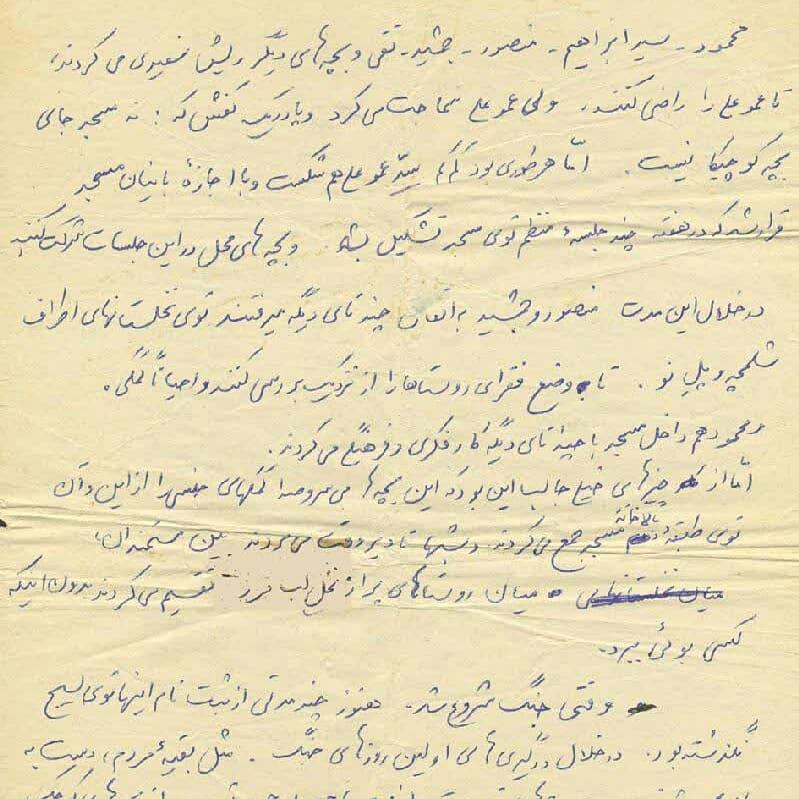 محمود - سید ابراهیم - منصور - جمشید - تقی و بچه‌های دیگر ریش سفیدی می کردند،
تا عمو علی را راضی کنند. ولی عمو علی سماجت می کرد و پا در یک کفش که: نه مسجد جای
بچه کوچیکا نیست. امّا هر طوری بود کم کم سدّ عمو علی هم شکست و با اجازهٔ بانیان مسجد
قرار شد که در هفته چند جلسهٔ منظم توی مسجد تشکیل بشه. و بچه های محل در این جلسات شرکت کنند
در خلال این مدت منصور و جمشید به اتفاق چند تای دیگه میرفتند توی نخلستانهای اطراف
شلمچه و پل نو. تا وضع فقرای روستاها را از نزدیک بررسی کنند و احیاناً کمکی.
محمود هم داخل مسجد با چند تای دیگه کار فکری و فرهنگی می کردند.
امّا از چیزهای خیلی جالب این بود که این بچه ها بی سروصدا کمکهای جنسی را از این و آن
توی طبقه بالای خانه مسجد جمع می کردند و شبها تا دیر وقت می بردند بین مستمندان،
میان نخلستانهای میان روستاهای پر از نخل لب مرز تقسیم می کردند بدون اینکه
کسی بوئی ببرد.
وقتی جنگ شروع شد. هنوز چند مدتی از ثبت نام اینها توی بسیج
نگذشته بود. در خلال درگیری های اولین روزهای جنگ. مثل بقیهٔ مردم، دست به